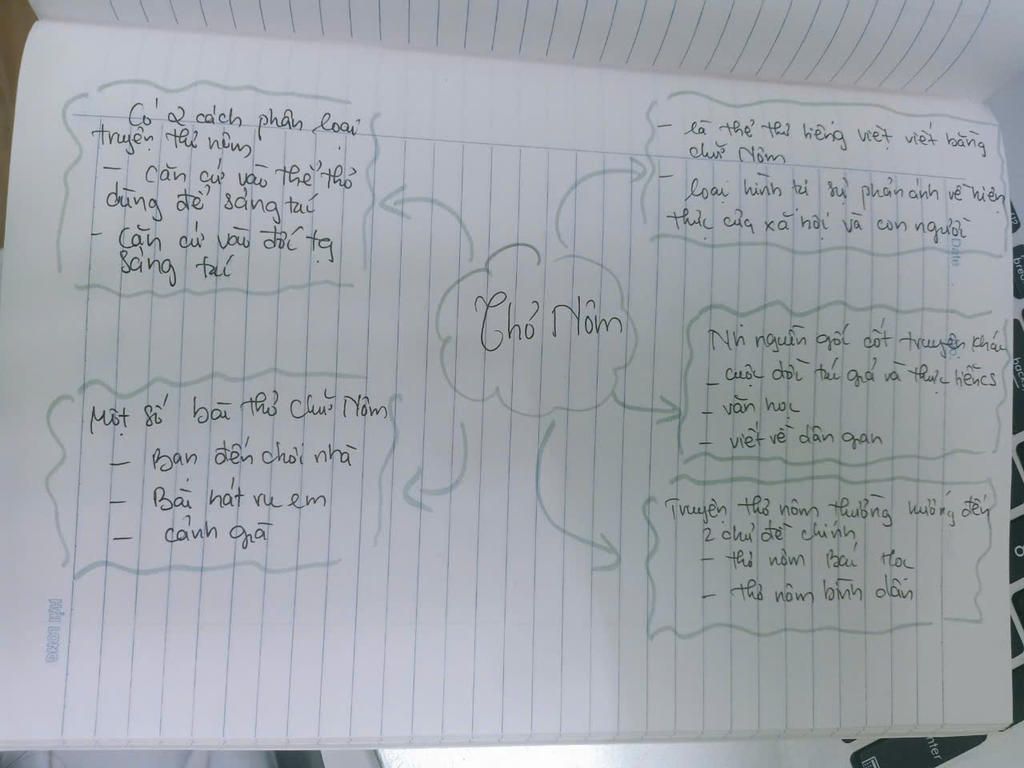 Thơ Nôm
Có 2 cách phân loại
truyện thơ nôm
- Căn cứ vào thể thơ
dùng để sáng tá
- Căn cứ vào đối tg
sáng tá
Một số bài thơ chữ Nôm
- Bạn đến chơi nhà
- Bài hát ru em
- cảnh già
- là thể thơ tiếng việt viết bằng
chữ Nôm
- loại hình tự sự phản ánh về hiện
thực của xã hội và con người
Date
nguồn gốc cốt truyện
- cuộc đời tác giả và thực
- văn học
- viết về dân gian
Truyện thơ nôm thường hướng đến
2 chủ đề chính
- thơ nôm Bác Học
- thơ nôm bình dân
HẢI LONG